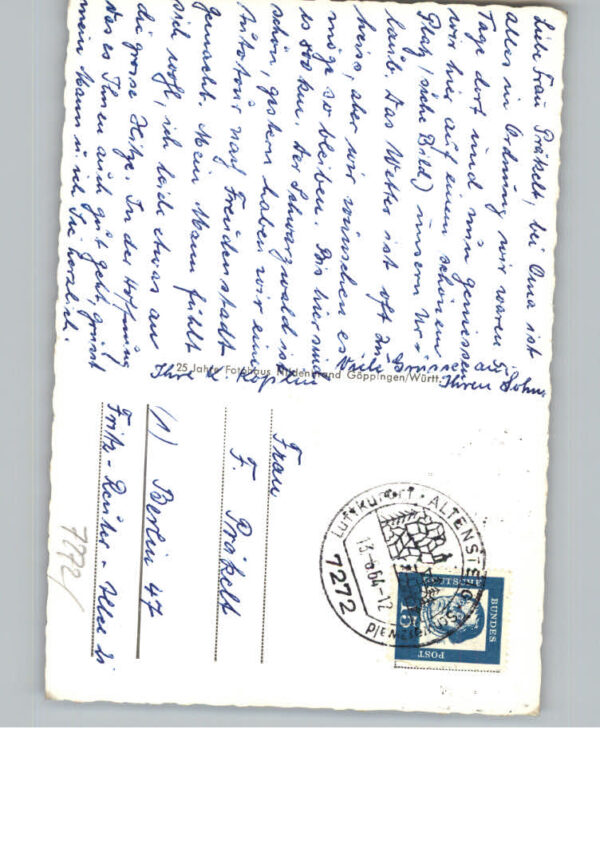 Liebe Frau Präkelt, bei Oma ist
alles in Ordnung wir waren
Tage dort und nun geniessen
wir hier auf einem schönen
Platz (siehe Bild) unsern Ur-
laub. Das Wetter ist oft zu
heiss, aber wir wünschen es
möge so bleiben. Bis hier sind
es 800 km. Der Schwarzwald ist
schön, gestern haben wir eine
Autotour nach Freudenstadt
gemacht. Mein Mann fühlt
sich wohl, ich leide etwas an
die grosse Hitze. In der Hoffnung
das es Ihnen auch gut geht, grüsst
mein Mann u. ich Sie herzlich.
Ihre K. Köplin
Viele Grüsse an
Ihren Sohn
25 Jahre Fotohaus Hildenbrand Göppingen/Württ.
Frau
F. Präkelt
(1) Berlin 47
Fritz-Reuter-Allee
7272/
LUFTKURORT · ALTENSTEIG
13.-6.64-12
7272
BUNDES
POST
15